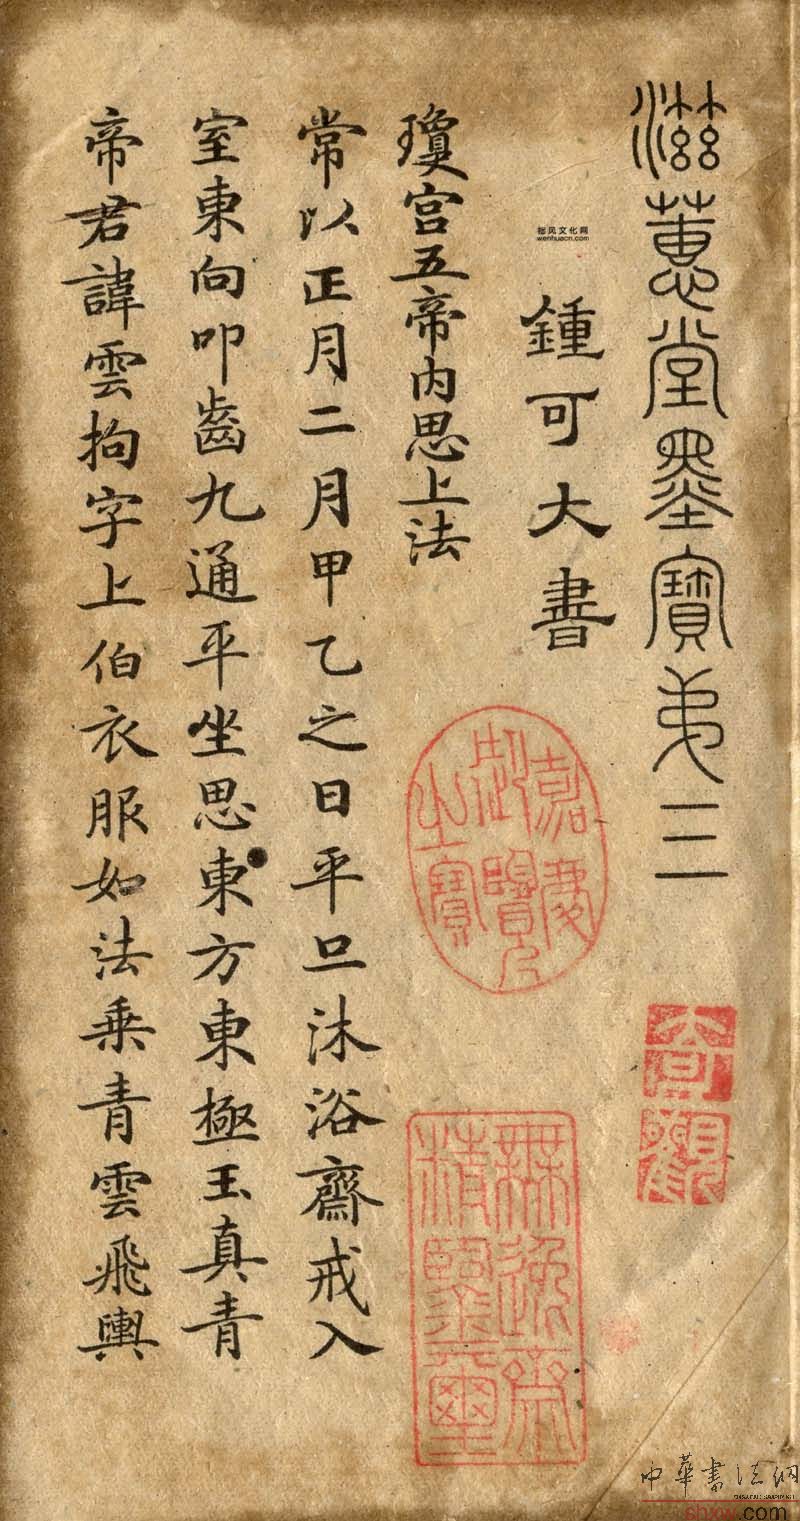 滋蕙堂墨寶弟三
鍾可大書
瓊宮五帝内思上法
常以正月二月甲乙之日平旦沐浴齋戒入
室東向叩齒九通平坐思東方東極玉真青
帝君諱雲拘字上伯衣服如法乘青雲飛輿
嘉慶御覽之寶
無逸齋精鑒璽
奇觀
书风文化网
wenhuacn.com
中華書法網
shbxw.com